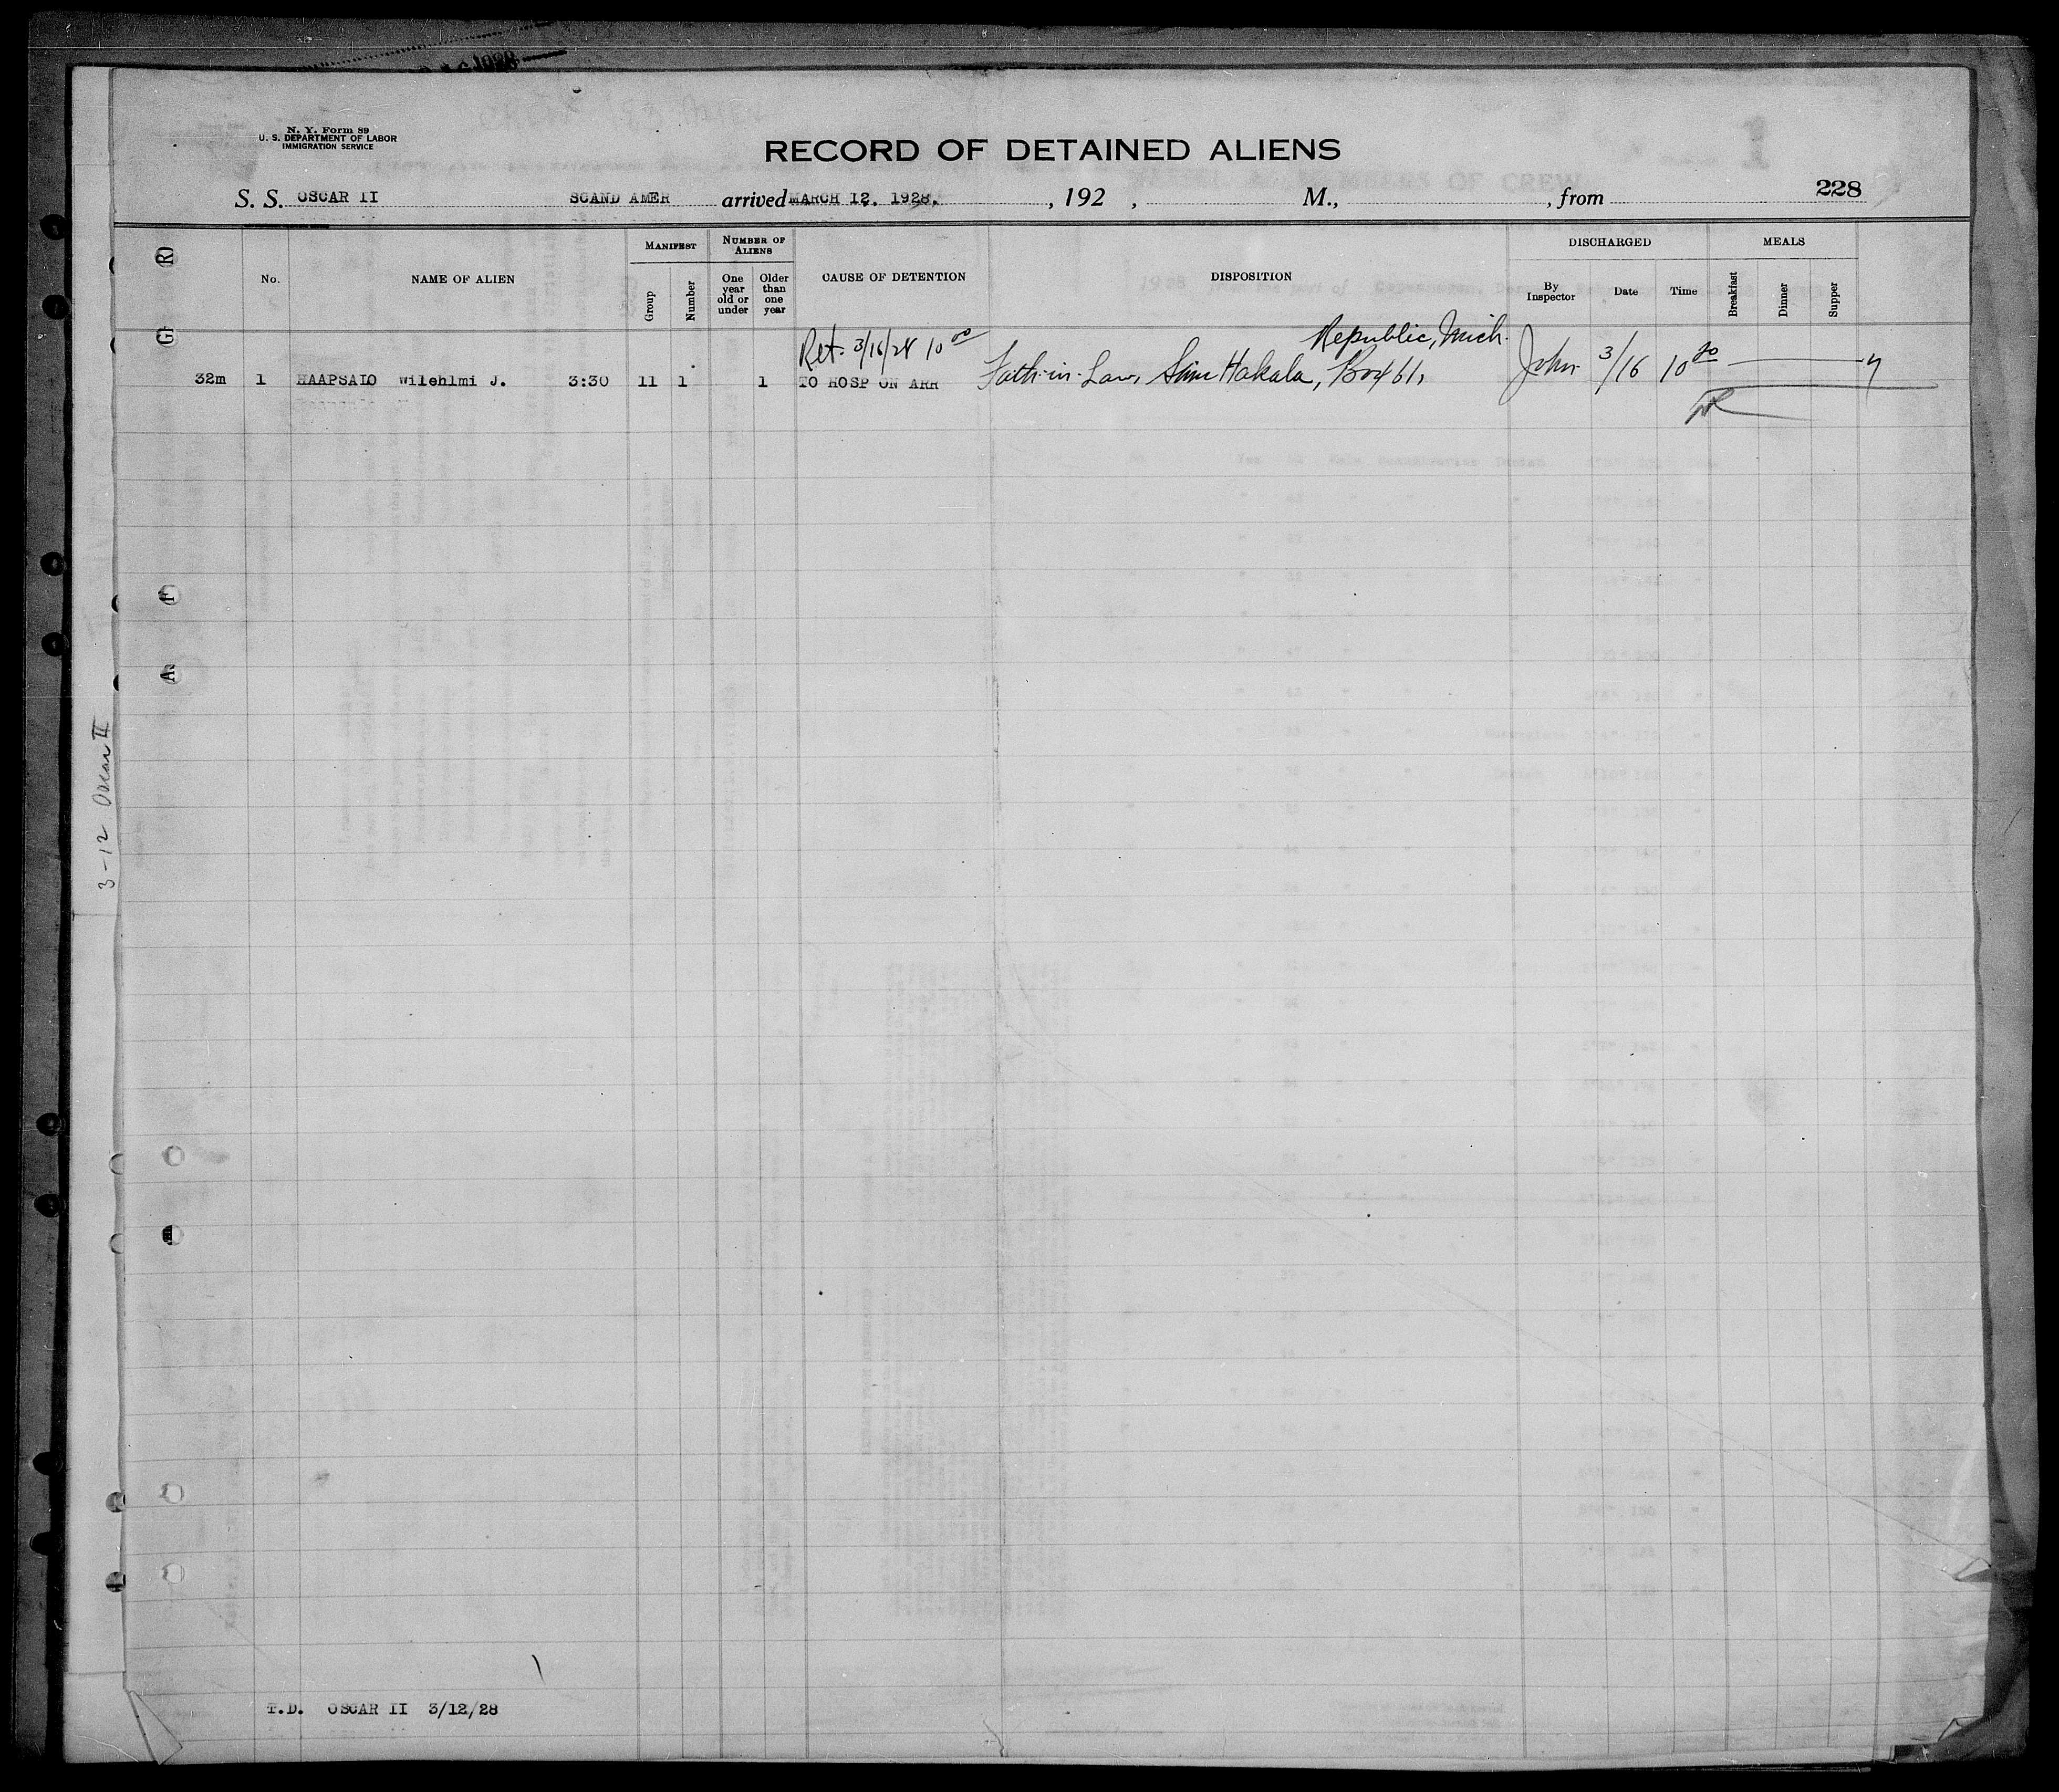 N. Y. Form 89
U. S. DEPARTMENT OF LABOR
IMMIGRATION SERVICE
RECORD OF DETAINED ALIENS
S. S. OSCAR II SCAND AMER arrived MARCH 12. 1928. , 192 , M., , from 228
No. NAME OF ALIEN MANIFEST Group Number NUMBER OF ALIENS One year old or under Older than one year CAUSE OF DETENTION DISPOSITION DISCHARGED By Inspector Date Time MEALS Breakfast Dinner Supper
Ret. 3/16/28 10 00 Republic, Mich.
32m 1 HAAPSALO Wilehlmi J. 3:30 11 1 1 TO HOSP ON ARR Fath-in-Law, Hakala, Box 61, John 3/16 10
R
G
F
A
3-12 Oscar II
T.D. OSCAR II 3/12/28